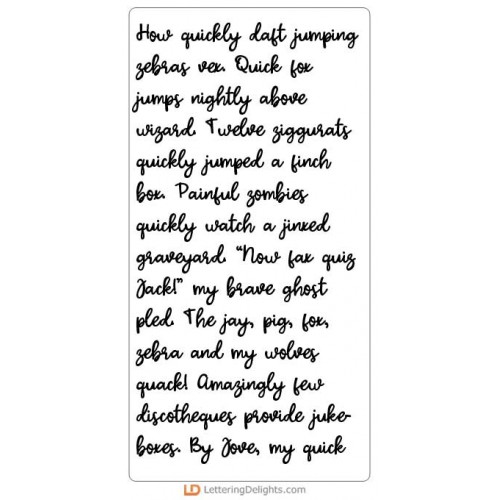 How quickly daft jumping
zebras vex. Quick fox
jumps nightly above
wizard. Twelve ziggurats
quickly jumped a finch
box. Painful zombies
quickly watch a jinxed
graveyard. “Now fax quiz
Jack!” my brave ghost
pled. The jay, pig, fox,
zebra and my wolves
quack! Amazingly few
discotheques provide juke-
boxes. By Jove, my quick
LD LetteringDelights.com